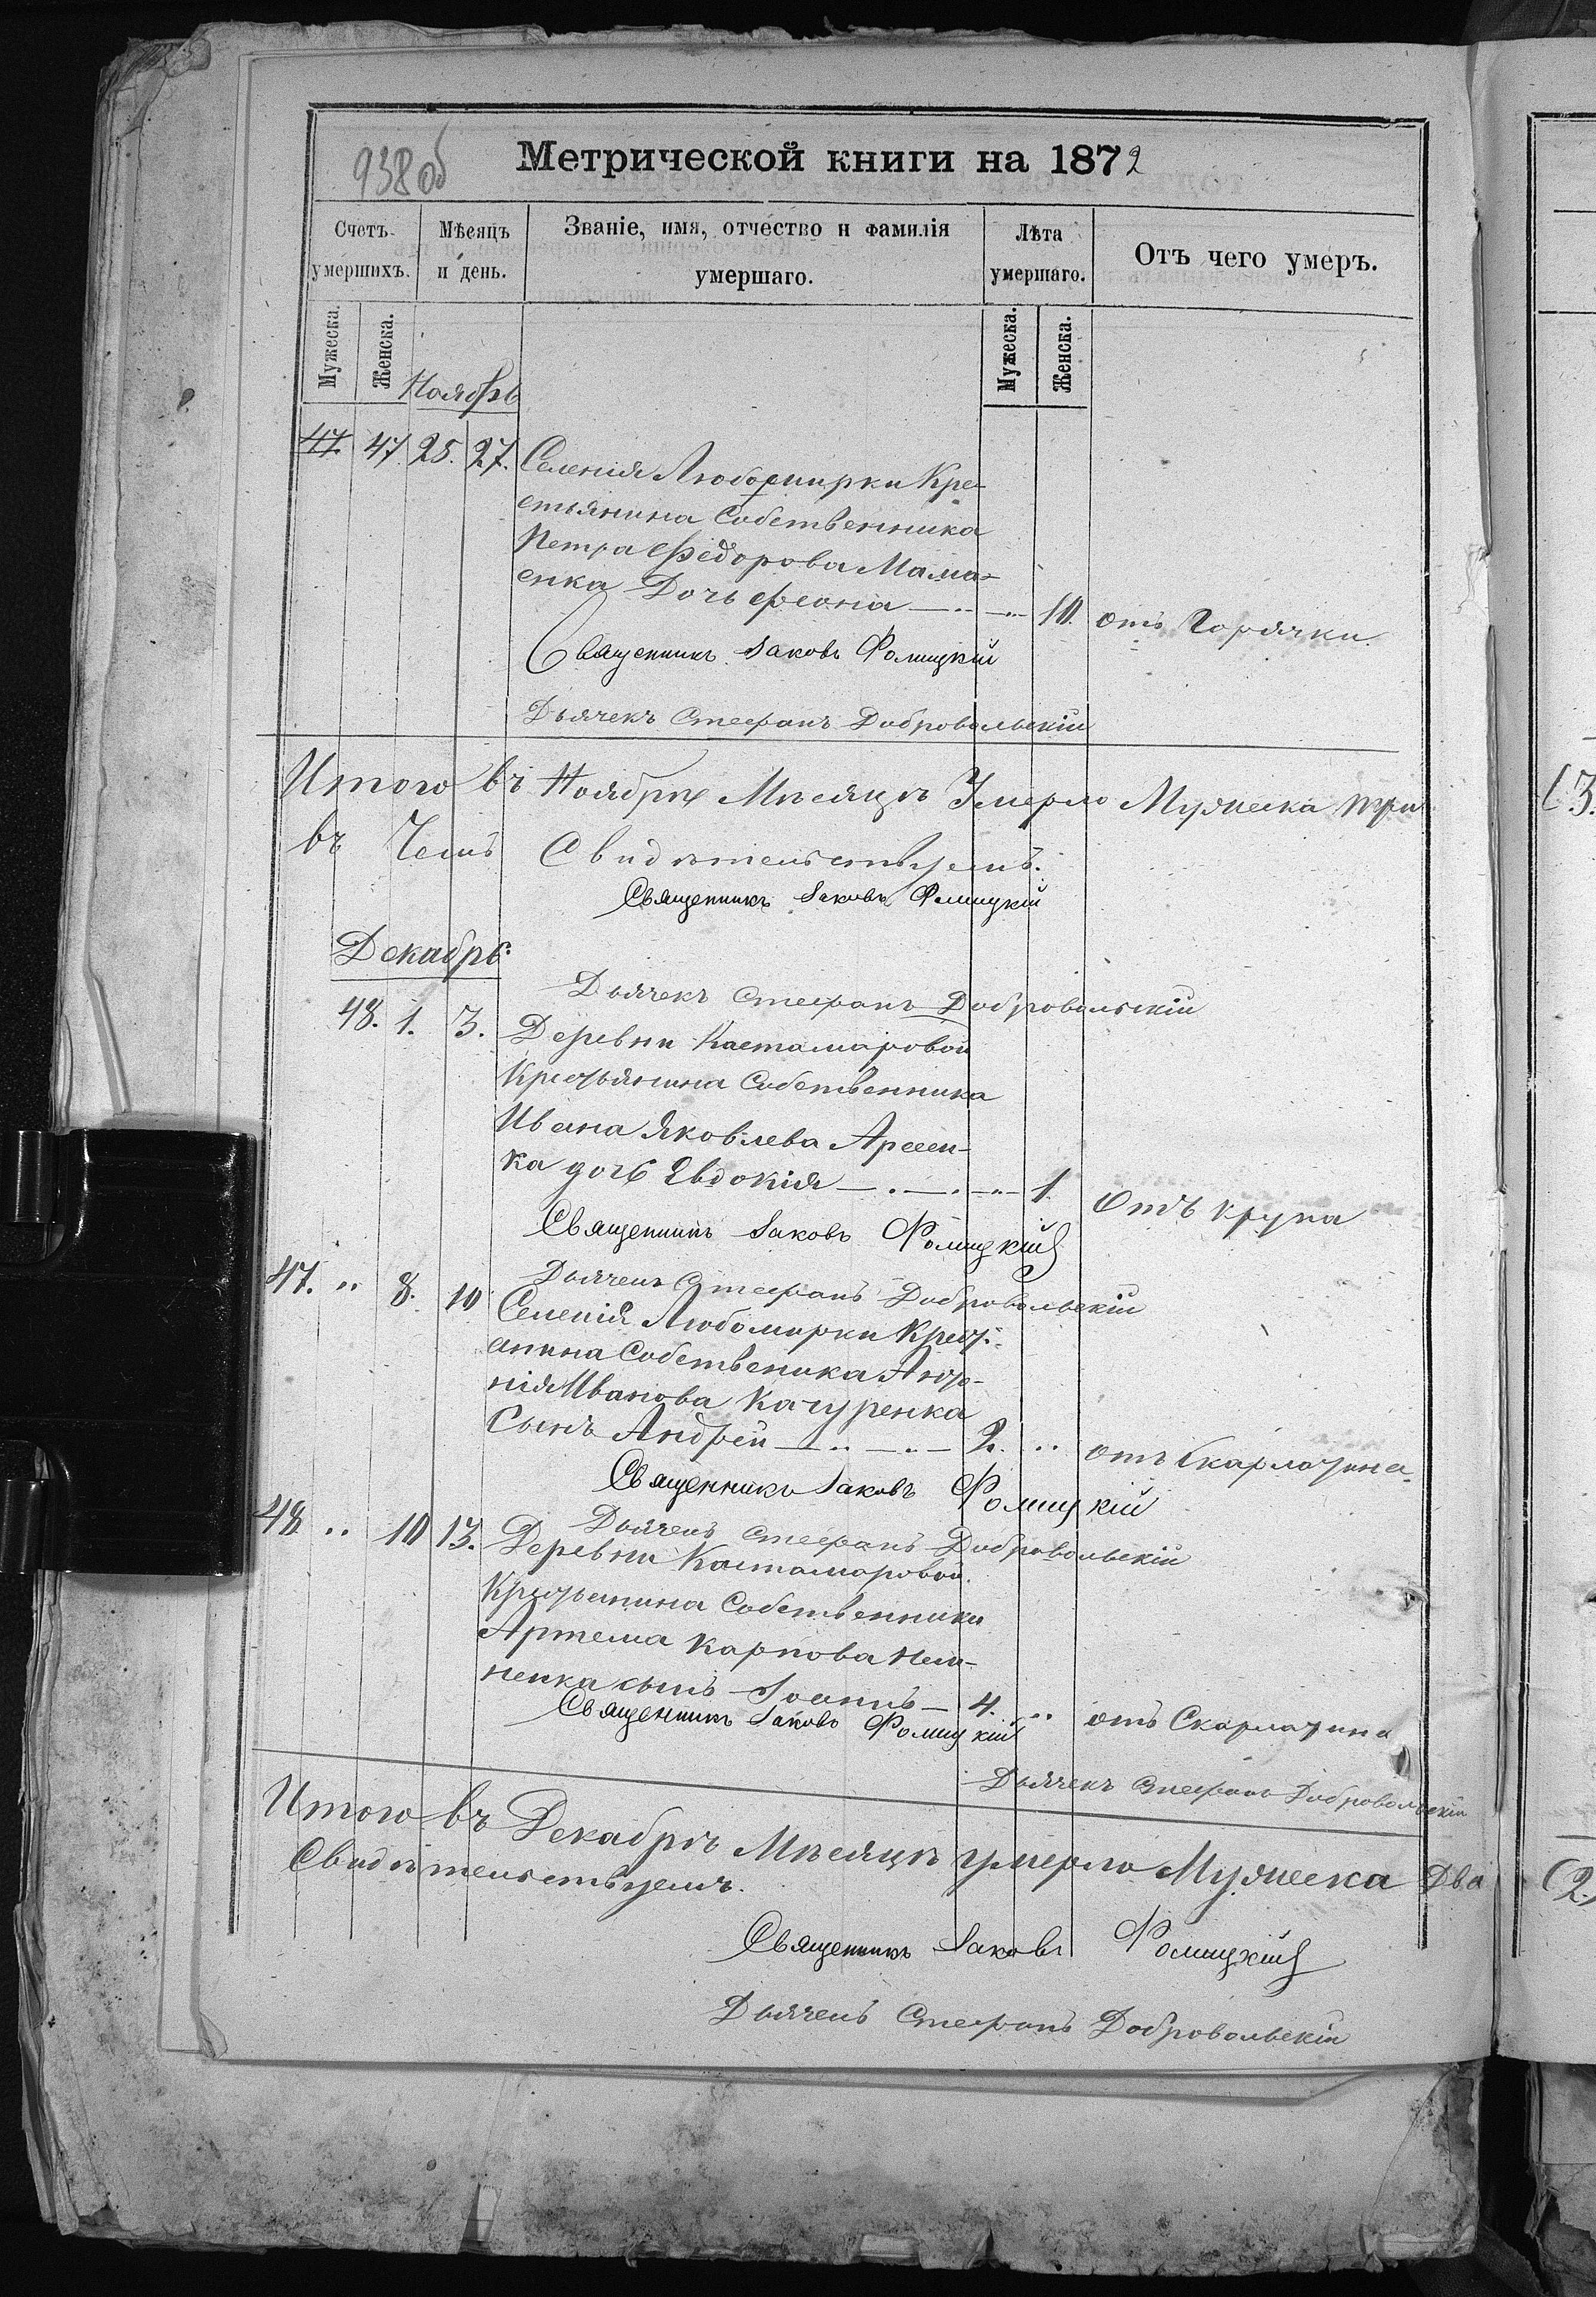 938об
Метрической книги на 1872
Счетъ умершихъ.
Мѣсяцъ и день.
Званіе, имя, отчество и фамилія умершаго.
Лѣта умершаго.
Отъ чего умеръ.
Мужеска.
Женска.
Мужеска.
Женска.
Ноябрь
47. 47. 25. 27. Селенія Любомирки Кре-
стьянина Собственника
Петра Ѳедорова Мама-
енка Дочь — 10. отъ Горячки
Священникъ Іаковъ Фомицкій
Дьячекъ Стефанъ Добровольскій
Итого въ Ноябрѣ Мѣсяцѣ Умерло Мужеска три
въ Чемъ Свидѣтельствуемъ.
Священникъ Іаковъ Фомицкій
Декабрь
Дьячекъ Стефанъ Добровольскій
48. 1. 3. Деревни Кастамаровой
Крестьянина Собственника
Ивана Яковлева Арсен-
ка дочь Евдокія — 1. Отъ крупа
Священникъ Іаковъ Фомицкій
Дьячекъ Стефанъ Добровольскій
47. " 8. 10 Селенія Любомирки Крест-
янина Собственика
нія Иванова Качуренка
Сынъ Андрей — 2. " отъ Скарлатина
Священникъ Іаковъ Фомицкій
Дьячекъ Стефанъ Добровольскій
48 " 10 13. Деревни Кастамаровой
Крестьянина Собственника
Артема Карпова
ненка сынъ Іоаннъ — 4. " отъ Скарлатина
Священникъ Іаковъ Фомицкій
Дьячекъ Стефанъ Добровольскій
Итого въ Декабрѣ Мѣсяцѣ умерло Мужеска Два
Свидѣтельствуемъ.
Священникъ Іаковъ Фомицкій
Дьячекъ Стефанъ Добровольскій
(3.
(2)